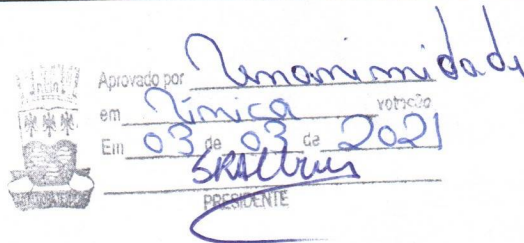 Aprovado por Unanimidade
em Única votação
Em 03 de 03 de 2021
PRESIDENTE